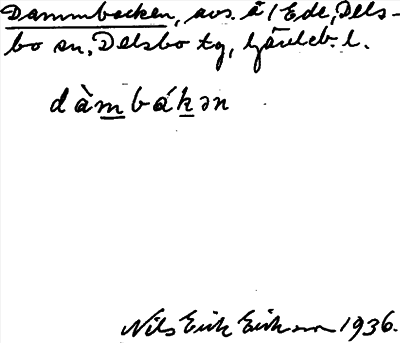 Dammbacken, avs. å 1 Ede, Dels-
bo sn, Delsbo tg, Gävleb. l.
dàm̲bák̲ən
Nils Erik Eriksson 1936.